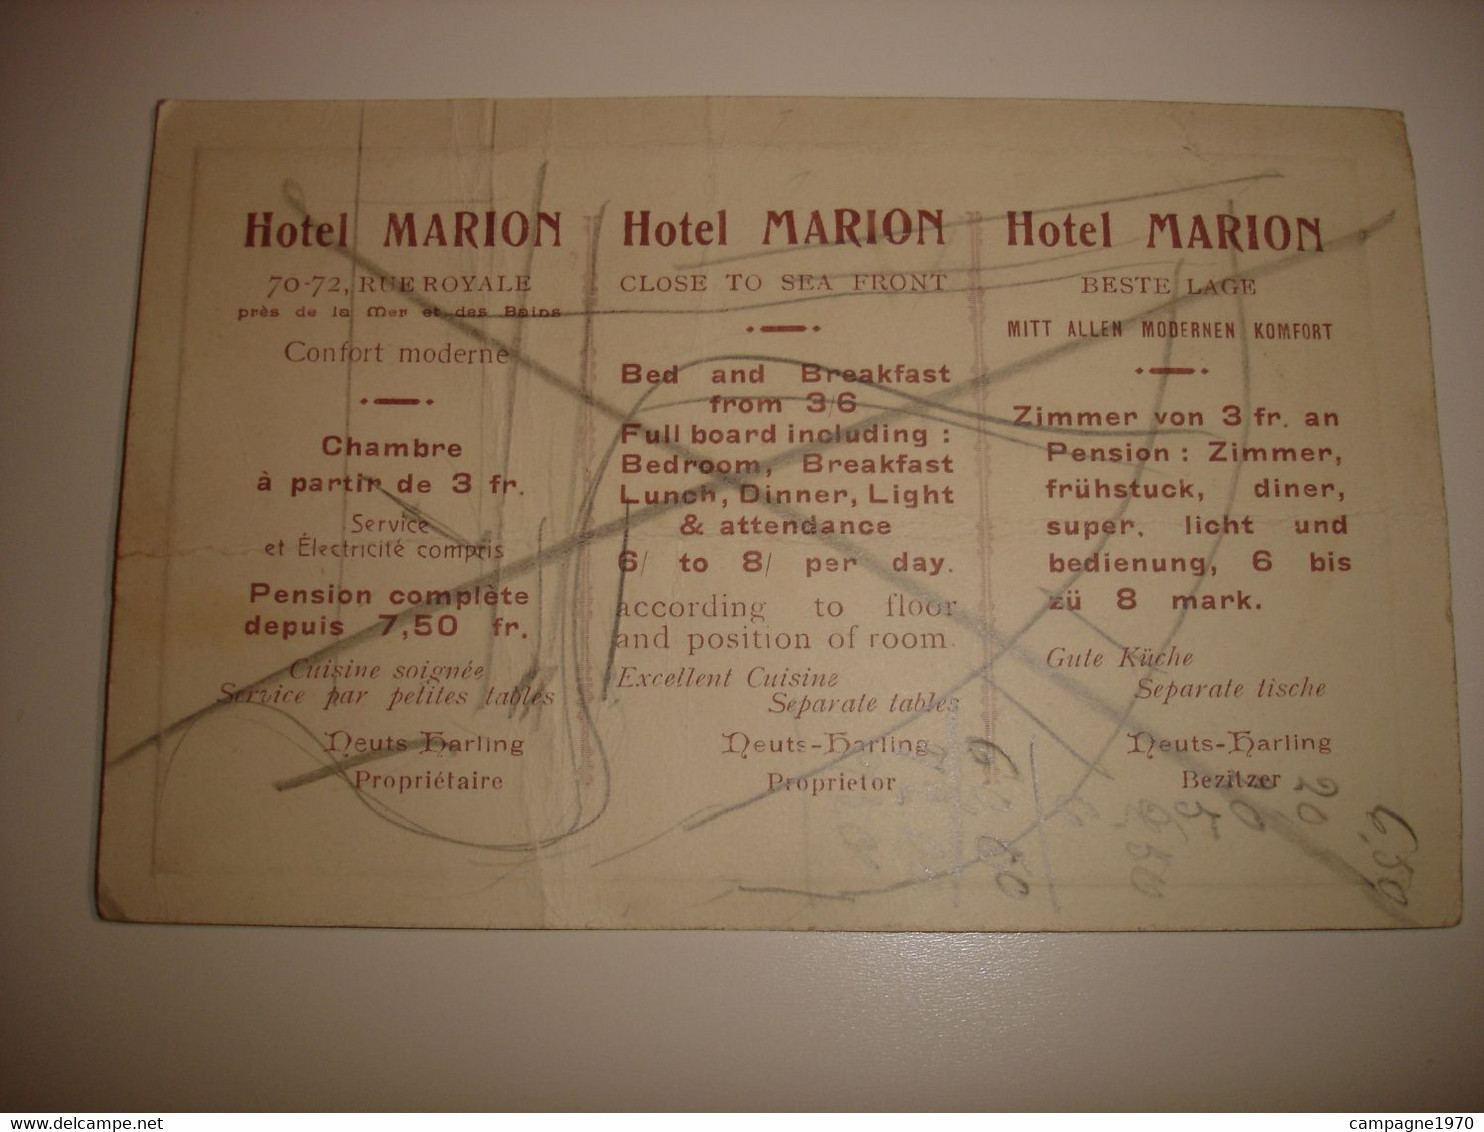 Hotel MARION
70-72, RUE ROYALE
près de la Mer et des Bains
Confort moderne
Chambre
à partir de 3 fr.
Service
et Électricité compris
Pension complète
depuis 7,50 fr.
Cuisine soignée
Service par petites tables
Neuts-Harling
Propriétaire
Hotel MARION
CLOSE TO SEA FRONT
Bed and Breakfast
from 3/6
Full board including :
Bedroom, Breakfast
Lunch, Dinner, Light
& attendance
6/ to 8/ per day.
according to floor
and position of room.
Excellent Cuisine
Separate tables
Neuts-Harling
Proprietor
Hotel MARION
BESTE LAGE
MITT ALLEN MODERNEN KOMFORT
Zimmer von 3 fr. an
Pension : Zimmer,
frühstuck, diner,
super, licht und
bedienung, 6 bis
zü 8 mark.
Gute Küche
Separate tische
Neuts-Harling
Bezitzer
6,50
20
delcampe.net
campagne1970